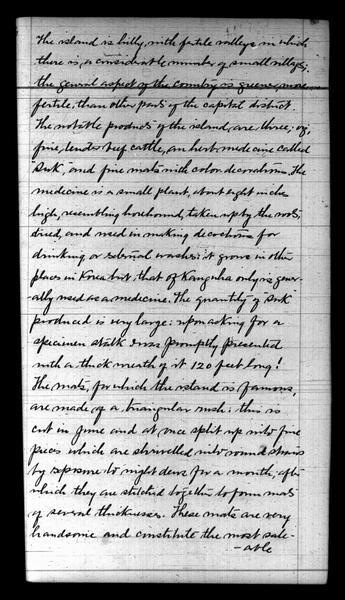 The island is hilly, with fertile valleys in which
there is, a considerable number of small villages;
the general aspect of the country is greener, more
fertile, than other parts of the capital district.
The notable products of the island, are three; viz,
fine, tender beef cattle, an herb medicine called
"Suk", and fine mats with color decorations. The
medicine is a small plant, about eight inches
high, resembling horehound, taken up by the roots,
dried, and used in making decoctions for
drinking or external washes: it grows in other
places in Korea but that of Kangwha only is gener-
ally used as a medicine. The quantity of "Suk"
produced is very large: upon asking for a
specimen stalk I was promptly presented
with a thick wreath of it 120 feet long!
The mats, for which the island is famous,
are made of a triangular rush: this is
cut in June and at once split up into fine
pieces which are shrivelled into round strands
by exposure to night dews for a month, after
which they are stitched together to form mats
of several thicknesses. These mats are very
handsome and constitute the most sale-
-able